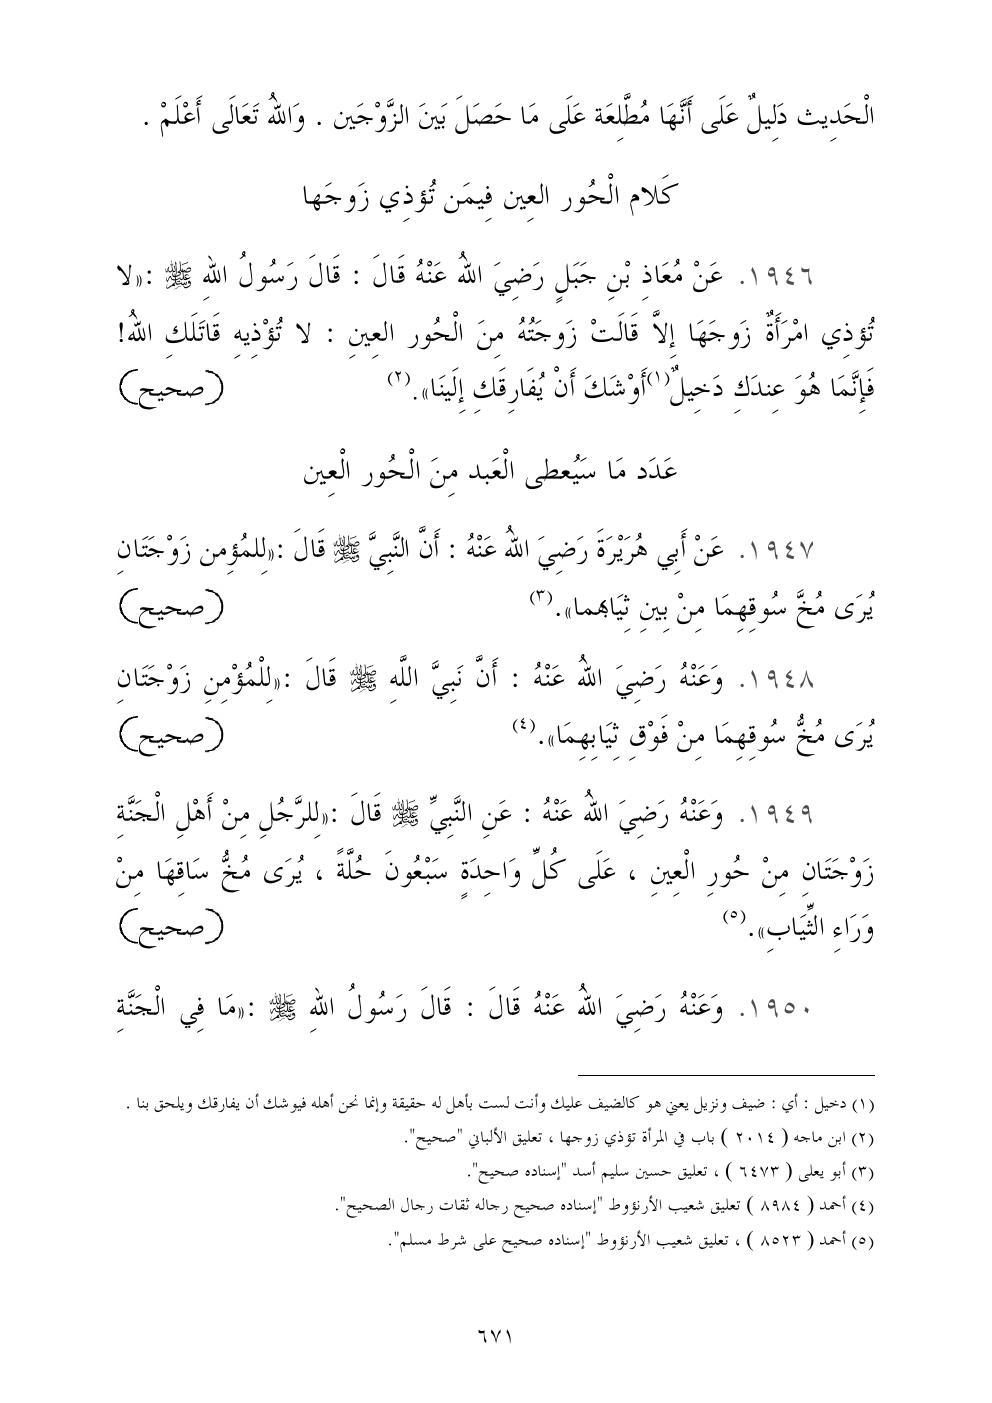 الْحَدِيث دَلِيلٌ عَلَى أَنَّهَا مُطَّلِعَة عَلَى مَا حَصَلَ بَينَ الزَّوْجَين . وَاللهُ تَعَالَى أَعْلَمْ .
كَلام الْحُور العِين فِيمَن تُؤذِي زَوجَها
١٩٤٦. عَنْ مُعَاذِ بْنِ جَبَلٍ رَضِيَ اللهُ عَنْهُ قَالَ : قَالَ رَسُولُ اللهِ ﷺ :«لا
تُؤذِي امْرَأَةٌ زَوجَهَا إِلاَّ قَالَتْ زَوجَتُهُ مِنَ الْحُور العِينِ : لا تُؤْذِيهِ قَاتَلَكِ اللهُ!
فَإِنَّمَا هُوَ عِندَكِ دَخِيلٌ(١)أَوْشَكَ أَنْ يُفَارِقَكِ إِلَينَا».(٢) (صحيح)
عَدَد مَا سَيُعطى الْعَبد مِنَ الْحُور الْعِين
١٩٤٧. عَنْ أَبِي هُرَيْرَةَ رَضِيَ اللهُ عَنْهُ : أَنَّ النَّبِيَّ ﷺ قَالَ :«لِلمُؤمِن زَوْجَتَانِ
يُرَى مُخَّ سُوقِهِمَا مِنْ بِينِ ثِيَابهما».(٣) (صحيح)
١٩٤٨. وَعَنْهُ رَضِيَ اللهُ عَنْهُ : أَنَّ نَبِيَّ اللَّهِ ﷺ قَالَ :«لِلْمُؤْمِنِ زَوْجَتَانِ
يُرَى مُخُّ سُوقِهِمَا مِنْ فَوْقِ ثِيَابِهِمَا».(٤) (صحيح)
١٩٤٩. وَعَنْهُ رَضِيَ اللهُ عَنْهُ : عَنِ النَّبِيِّ ﷺ قَالَ :«لِلرَّجُلِ مِنْ أَهْلِ الْجَنَّةِ
زَوْجَتَانِ مِنْ حُورِ الْعِينِ ، عَلَى كُلِّ وَاحِدَةٍ سَبْعُونَ حُلَّةً ، يُرَى مُخُّ سَاقِهَا مِنْ
وَرَاءِ الثِّيَابِ».(٥) (صحيح)
١٩٥٠. وَعَنْهُ رَضِيَ اللهُ عَنْهُ قَالَ : قَالَ رَسُولُ اللهِ ﷺ :«مَا فِي الْجَنَّةِ
(١) دخيل : أي : ضيف ونزيل يعني هو كالضيف عليك وأنت لست بأهل له حقيقة وإنما نحن أهله فيوشك أن يفارقك ويلحق بنا .
(٢) ابن ماجه ( ٢٠١٤ ) باب في المرأة تؤذي زوجها ، تعليق الألباني "صحيح".
(٣) أبو يعلى ( ٦٤٧٣ ) ، تعليق حسين سليم أسد "إسناده صحيح".
(٤) أحمد ( ٨٩٨٤ ) تعليق شعيب الأرنؤوط "إسناده صحيح رجاله ثقات رجال الصحيح".
(٥) أحمد ( ٨٥٢٣ ) ، تعليق شعيب الأرنؤوط "إسناده صحيح على شرط مسلم".
٦٧١